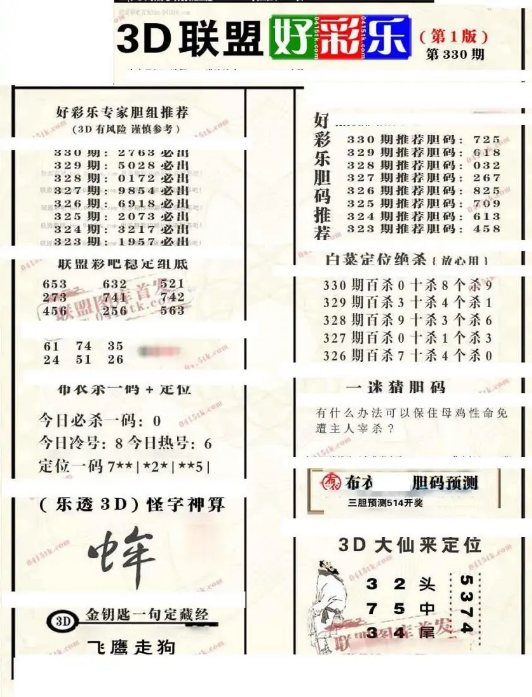 3D联盟 好彩乐 (第1版)
第330期
好彩乐专家胆组推荐
(3D有风险 谨慎参考)
330期: 2763必出
329期: 5028必出
328期: 0172必出
327期: 9854必出
326期: 6918必出
325期: 2073必出
324期: 3217必出
323期: 1957必出
联盟彩吧稳定组底
653 632 521
273 741 742
456 256 563
联盟图库首发
61 74 35
24 51 26
布衣杀一码+定位
今日必杀一码: 0
今日冷号: 8 今日热号: 6
定位一码 7**|*2*|**5|
(乐透3D)怪字神算
3D 金钥匙一句定藏经
飞鹰走狗
好彩乐胆码推荐
330期推荐胆码: 725
329期推荐胆码: 618
328期推荐胆码: 032
327期推荐胆码: 267
326期推荐胆码: 825
325期推荐胆码: 709
324期推荐胆码: 613
323期推荐胆码: 458
白菜定位绝杀(放心用)
330期百杀0十杀8个杀9
329期百杀3十杀4个杀1
328期百杀9十杀3个杀6
327期百杀0十杀1个杀3
326期百杀7十杀4个杀0
一迷猜胆码
有什么办法可以保住母鸡性命免
遭主人宰杀?
布衣 胆码预测
三胆预测514开奖
3D大仙来定位
3 2 头
7 5 中
3 4 尾
5374
联盟图库首发
0415tk.com